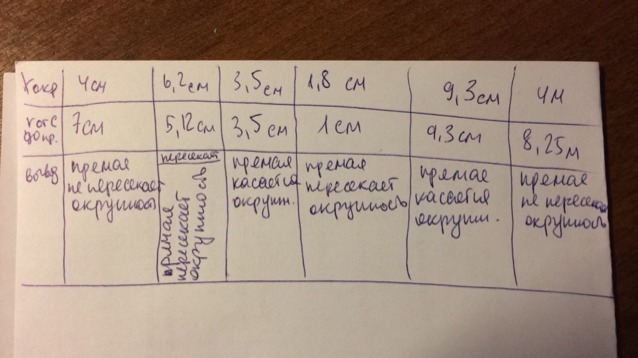 r окр 4 см 6,2 см 3,5 см 1,8 см 9,3 см 4 м
7 см 5,12 см 3,5 см 1 см 9,3 см 8,25 м
вывод
прямая
не пересекает
окружность
пересекает
прямая
пересекает
окружность
прямая
касается
окружн.
прямая
пересекает
окружность
прямая
касается
окружн.
прямая
не пересекает
окружность